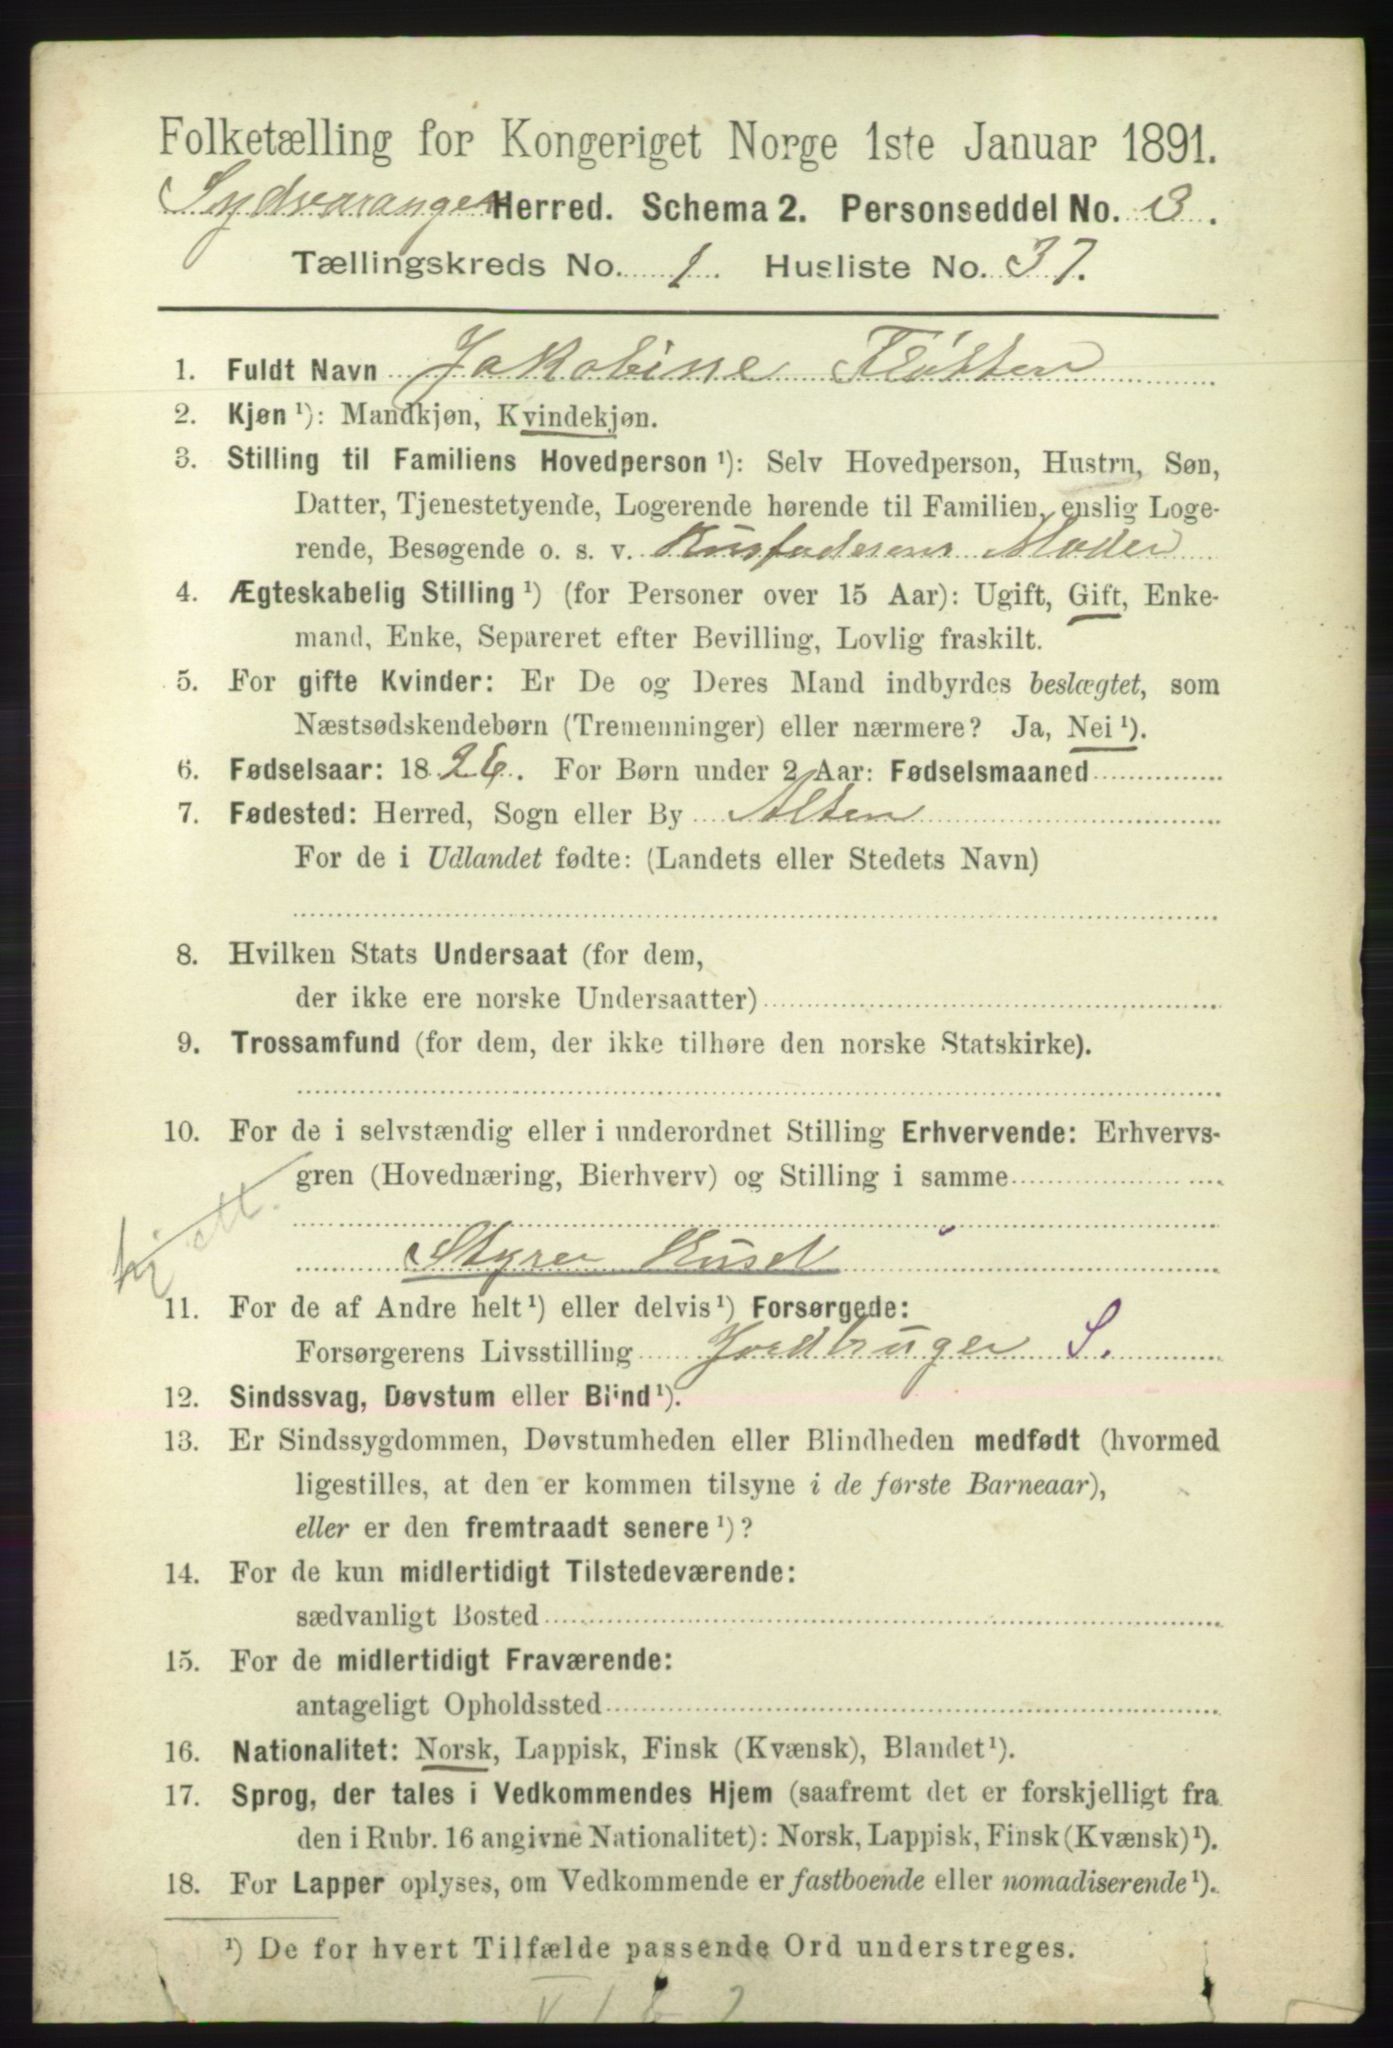 Folketælling for Kongeriget Norge 1ste Januar 1891.
Sydvaranger Herred. Schema 2. Personseddel No. 3.
Tællingskreds No. 1. Husliste No. 37.
1. Fuldt Navn Jakobine Fløtten
2. Kjøn ¹): Mandkjøn, Kvindekjøn.
3. Stilling til Familiens Hovedperson ¹): Selv Hovedperson, Hustru, Søn,
Datter, Tjenestetyende, Logerende hørende til Familien, enslig Loge-
rende, Besøgende o. s. v. Husfaderens Moder
4. Ægteskabelig Stilling ¹) (for Personer over 15 Aar): Ugift, Gift, Enke-
mand, Enke, Separeret efter Bevilling, Lovlig fraskilt.
5. For gifte Kvinder: Er De og Deres Mand indbyrdes beslægtet, som
Næstsødskendebørn (Tremenninger) eller nærmere? Ja, Nei ¹).
6. Fødselsaar: 1826. For Børn under 2 Aar: Fødselsmaaned
7. Fødested: Herred, Sogn eller By Alten
For de i Udlandet fødte: (Landets eller Stedets Navn)
8. Hvilken Stats Undersaat (for dem,
der ikke ere norske Undersaatter)
9. Trossamfund (for dem, der ikke tilhøre den norske Statskirke).
10. For de i selvstændig eller i underordnet Stilling Erhvervende: Erhvervs-
gren (Hovednæring, Bierhverv) og Stilling i samme
Styrer Huset
11. For de af Andre helt ¹) eller delvis ¹) Forsørgede:
Forsørgerens Livsstilling Jordbruger S.
12. Sindssvag, Døvstum eller Blind ¹).
13. Er Sindssygdommen, Døvstumheden eller Blindheden medfødt (hvormed
ligestilles, at den er kommen tilsyne i de første Barneaar),
eller er den fremtraadt senere ¹)?
14. For de kun midlertidigt Tilstedeværende:
sædvanligt Bosted
15. For de midlertidigt Fraværende:
antageligt Opholdssted
16. Nationalitet: Norsk, Lappisk, Finsk (Kvænsk), Blandet ¹).
17. Sprog, der tales i Vedkommendes Hjem (saafremt det er forskjelligt fra
den i Rubr. 16 angivne Nationalitet): Norsk, Lappisk, Finsk (Kvænsk) ¹).
18. For Lapper oplyses, om Vedkommende er fastboende eller nomadiserende ¹).
¹) De for hvert Tilfælde passende Ord understreges.